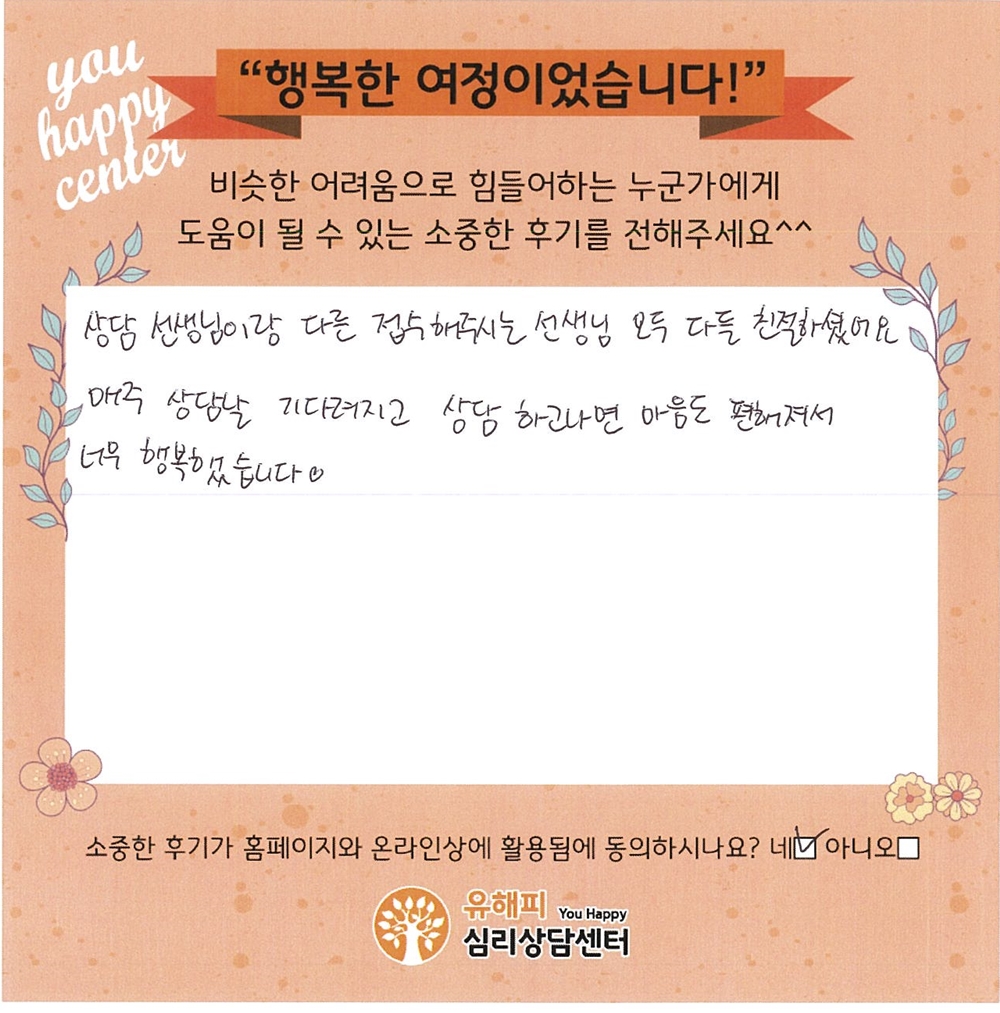 you
happy
center
“행복한 여정이었습니다!”
비슷한 어려움으로 힘들어하는 누군가에게
도움이 될 수 있는 소중한 후기를 전해주세요^^
상담 선생님이랑 다른 접수해주시는 선생님 모두 다들 친절하셨어요
매주 상담날 기다려지고 상담 하고나면 마음도 편해져서
너무 행복했습니다
소중한 후기가 홈페이지와 온라인상에 활용됨에 동의하시나요? 네☑ 아니오☐
유해피 You Happy
심리상담센터